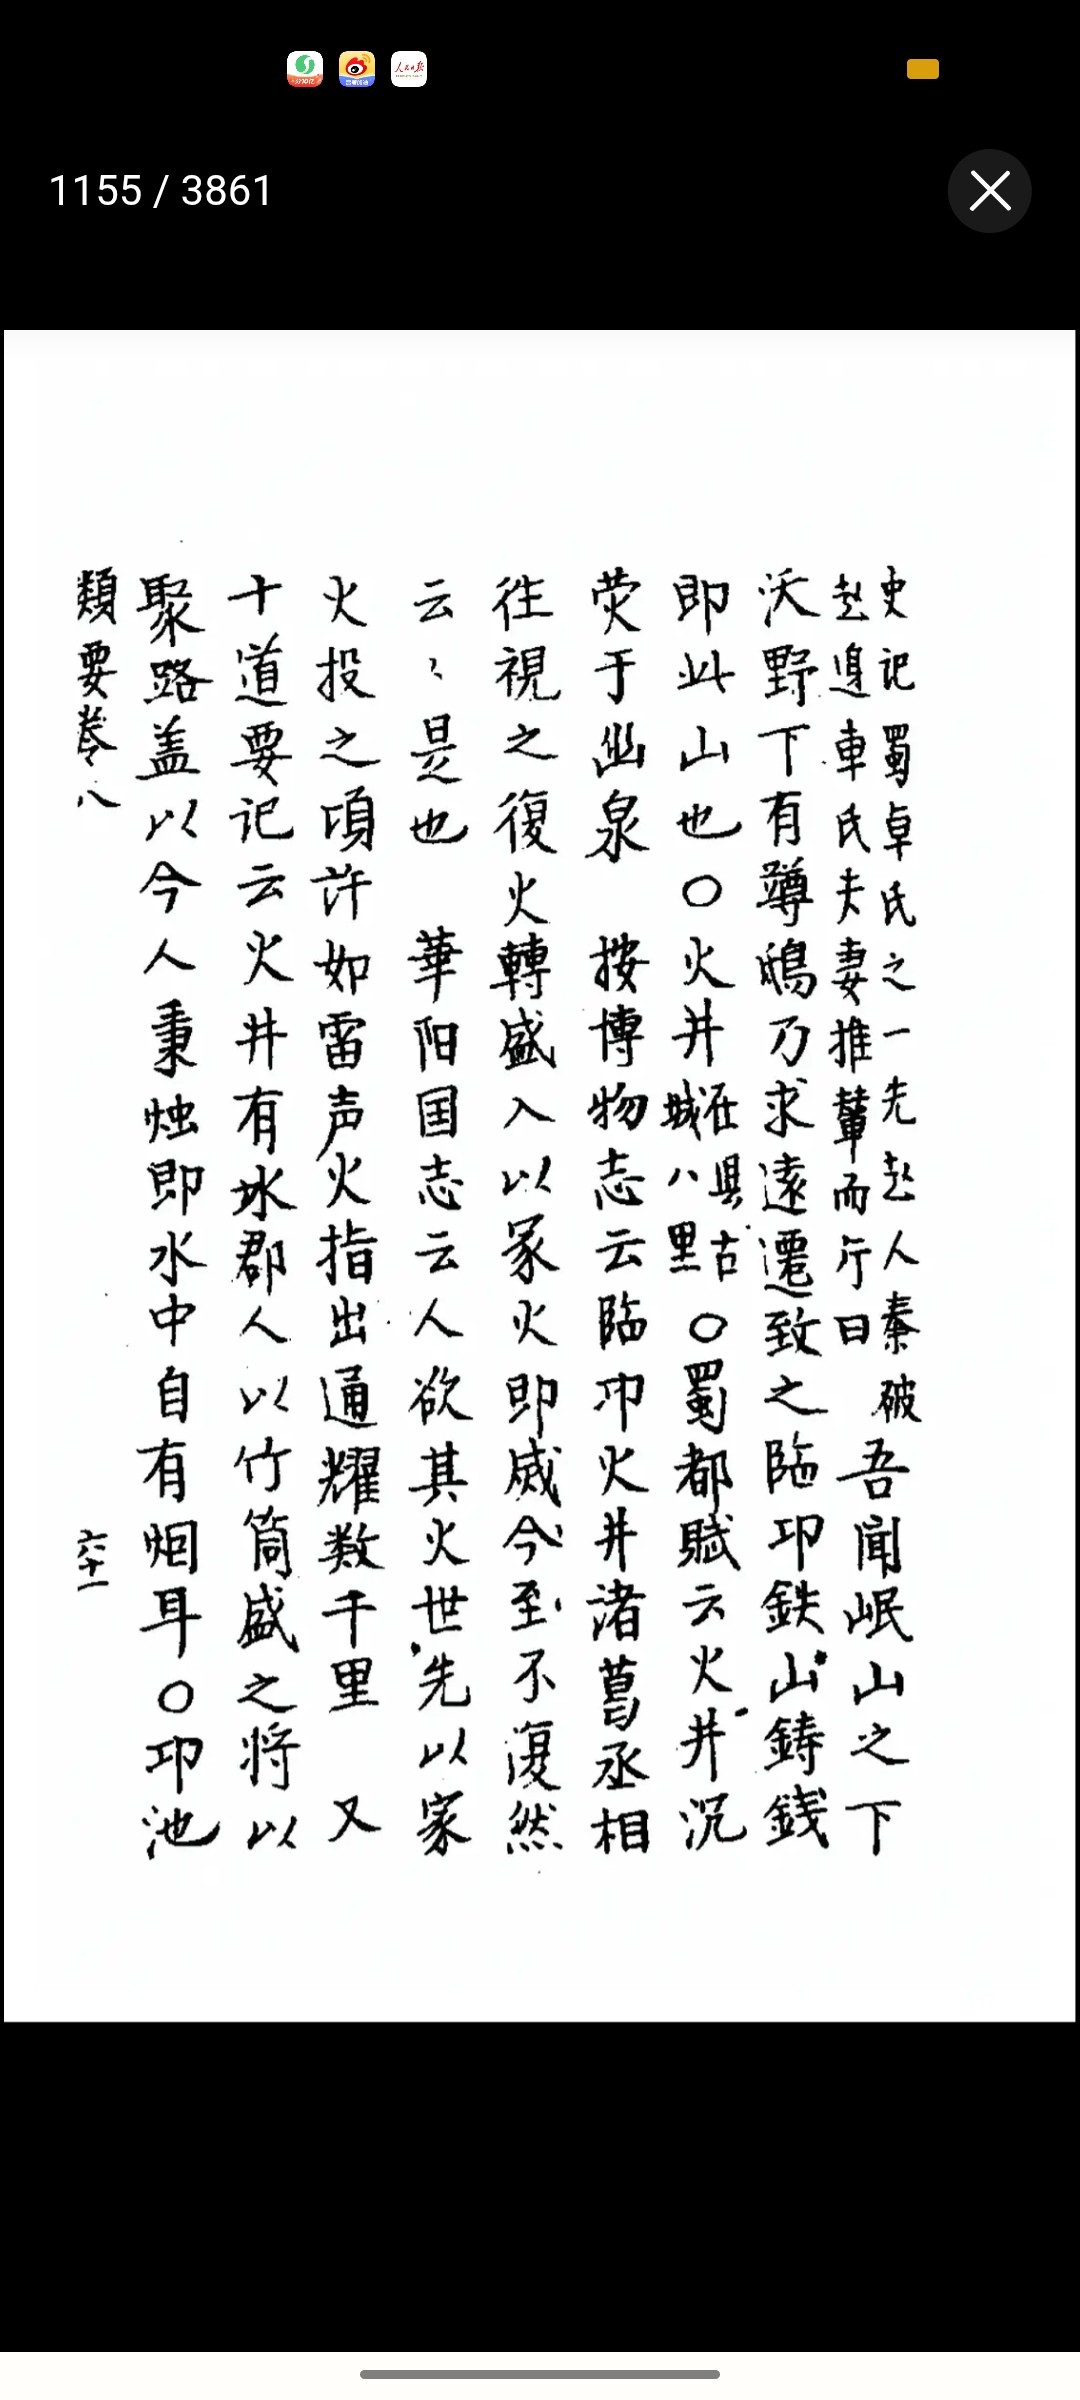 1155 / 3861
史记蜀卓氏之一先赵人秦破
赵迁車氏夫妻推輦而行曰
吾闻岷山之下
沃野下有蹲鴟乃求遠遷致之臨邛鉄山鋳銭
即此山也〇火井在县古城八里〇蜀都赋云火井沉
荧于幽泉 按博物志云臨邛火井诸葛丞相
往視之復火轉盛入以家火即滅今至不復然
云〻是也 華阳国志云人欲其火世先以家
火投之頃许如雷声火指出通耀数千里 又
十道要记云火井有水郡人以竹筒盛之将以
聚路盖以今人秉烛即水中自有烟耳〇邛池
類要卷八
六十一